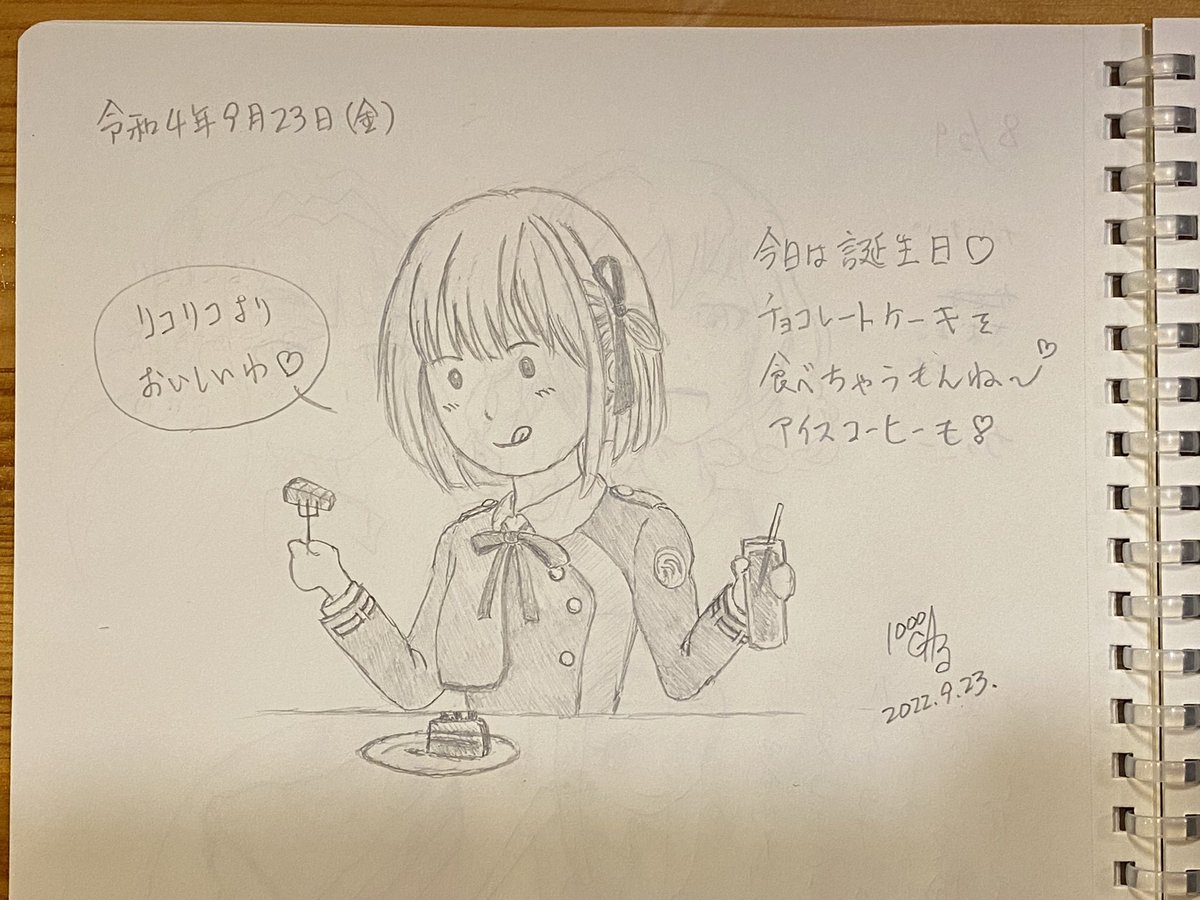 令和4年9月23日(金)
リコリコより
おいしいわ♡
今日は誕生日♡
チョコレートケーキを
食べちゃうもんね〜♡
アイスコーヒーも
2022.9.23.
8/29